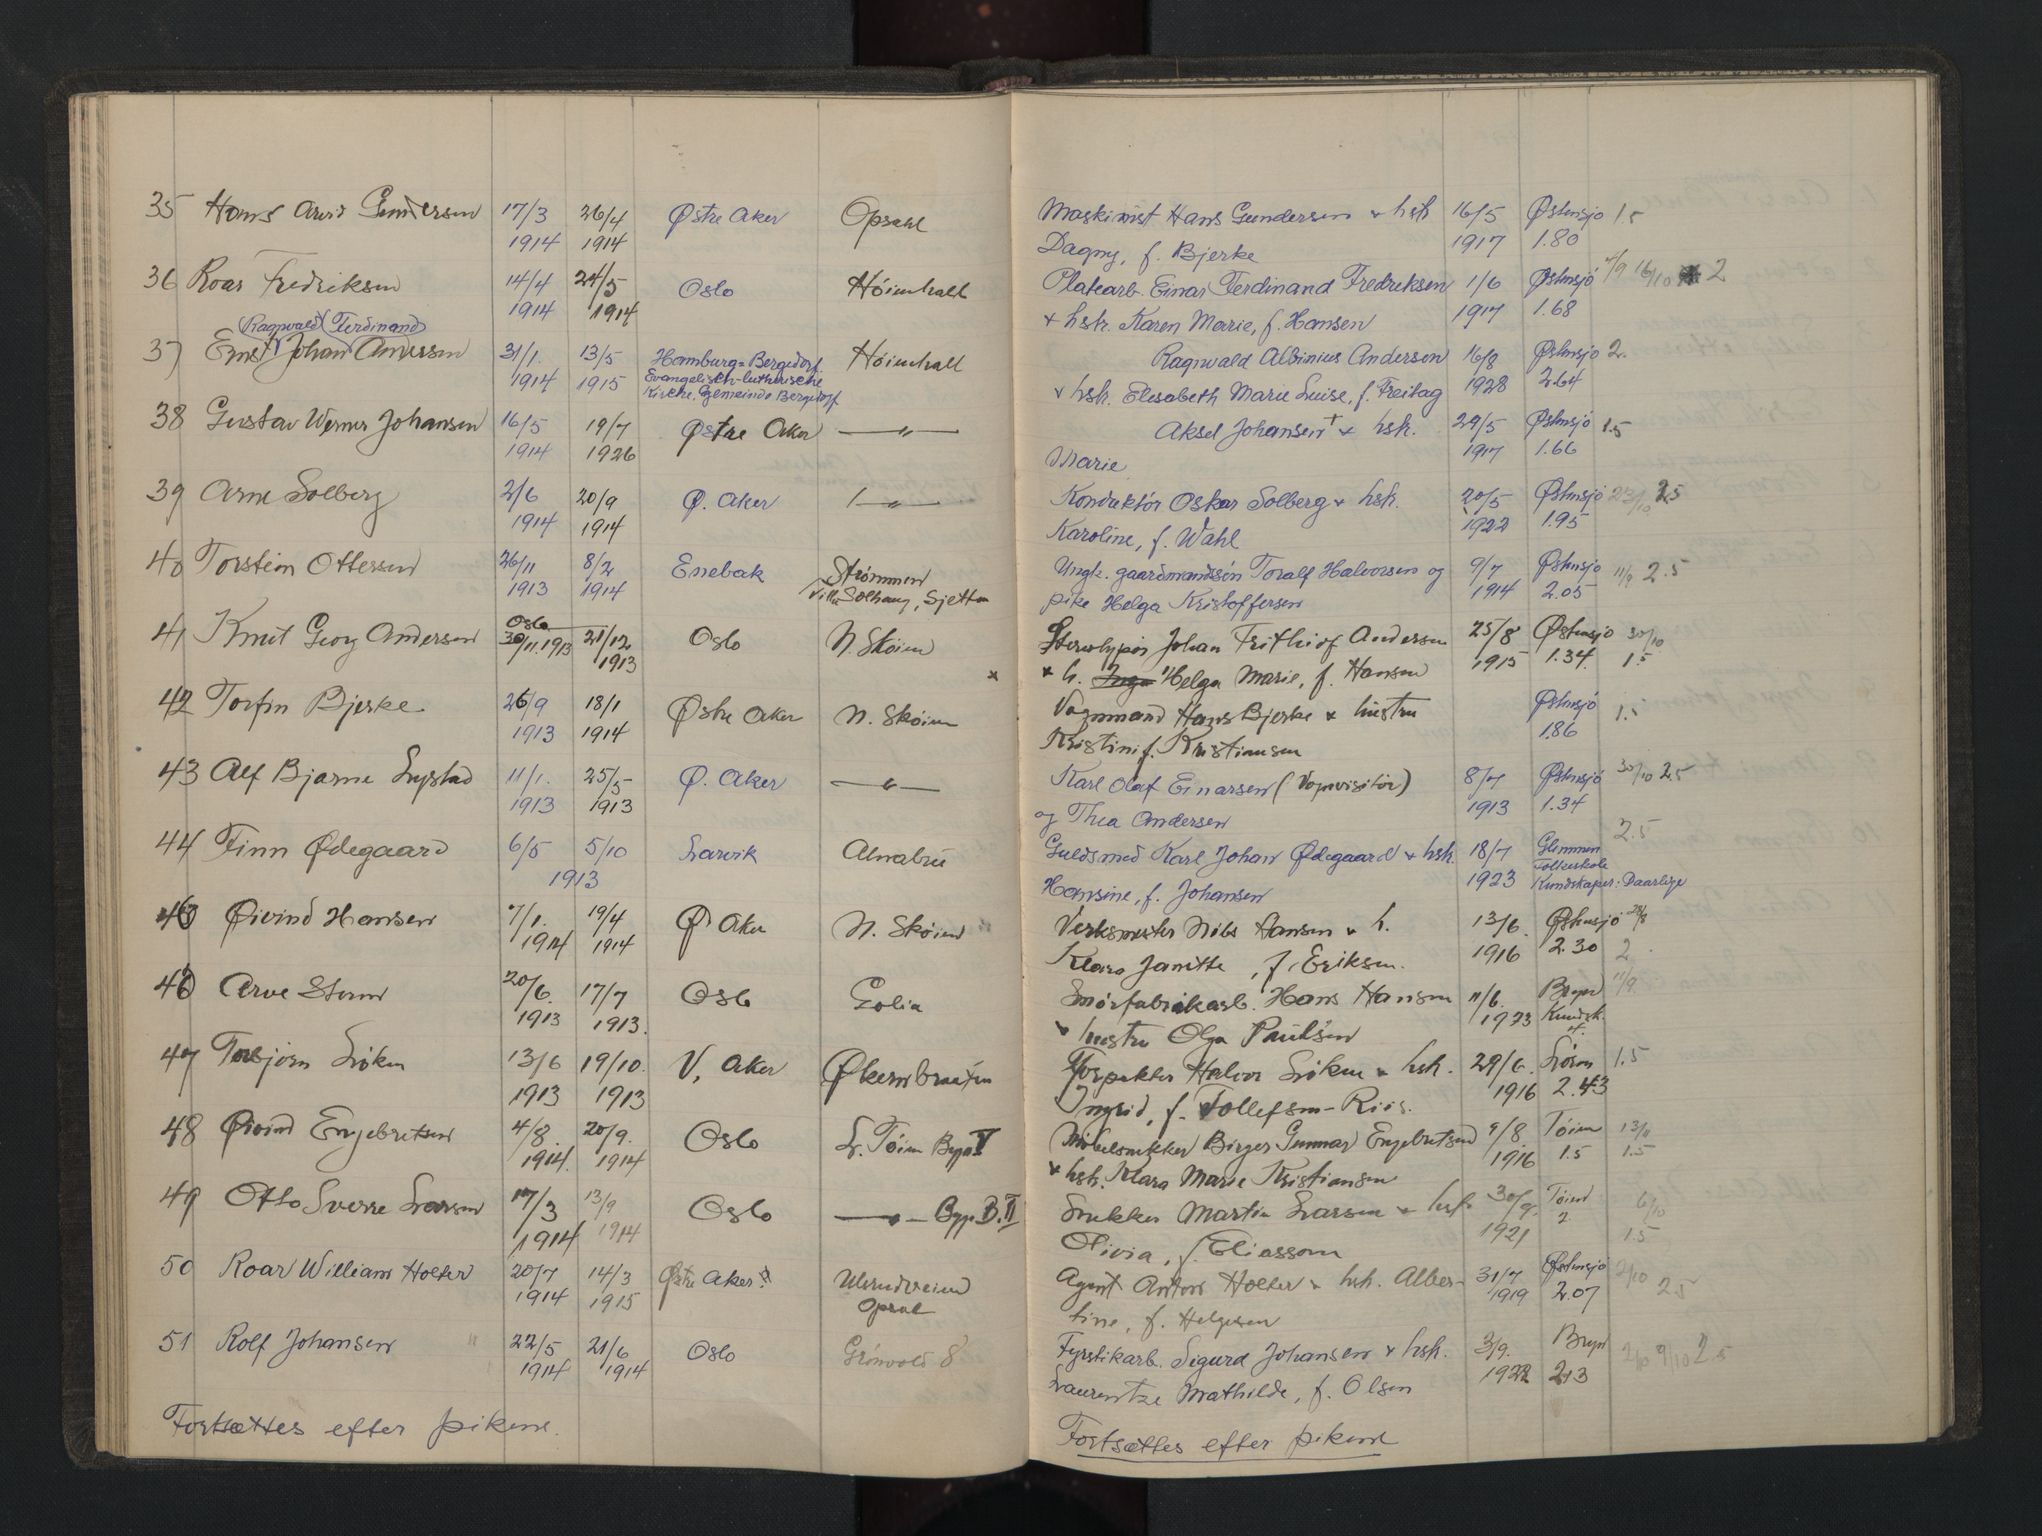 35 Hans Arvid Gundersen 17/3 26/4 Østre Aker Opsahl
1914 1914
36 Roar Fredriksen 14/4 24/5 Oslo Höienhall
1914 1914
Ragnvald Ferdinand
37 Ernst Johan Andersen 31/1. 13/5 Hamburg=Bergedorf. Höienhall
1914 1915 Evangelisch-lutherische
Kirche. Gemeinde Bergedorf
38 Gustav Werner Johansen 16/5 19/7 Østre Aker —"—
1914 1926
39 Arne Solberg 2/6 20/9 Ø. Aker —"—
1914 1914
40 Torstein Ottersen 26/11 8/2 Enebak Strömmen
1913 1914 Villa Solhaug, Sjetten
Oslo
41 Knut Georg Andersen 30/11.1913 21/12 Oslo N. Skøien
1913
42 Torfin Bjerke 26/9 18/1 Østre Aker N. Skøien
1913 1914
43 Alf Bjarne Lystad 11/1. 25/5 Ø. Aker —"—
1913 1913
44 Finn Ødegaard 6/5 5/10 Larvik Alnabru
1913
45 Øivind Hansen 7/1. 19/4 Ø Aker N. Skøien
1914 1914
46 Arve Storm 20/6. 17/7 Oslo Golia
1913 1913.
47 Torbjørn Løken 13/6 19/10. V. Aker Økernbraaten
1913 1913
48 Øivind Engebretsen 4/8. 20/9. Oslo L. Töien Byg V
1914. 1914
49 Otto Sverre Larsen 17/3 13/9 Oslo —"— Byg B. II
1914 1914
50 Roar William Holter 20/7 14/3 Østre Aker Ulsrudveien
1914 1915 Opsal
51 Rolf Johansen " 22/5 21/6 Oslo Grönvold 8
1914 1914
Fortsættes efter pikene.
Maskinist Hans Gundersen & hstr 16/5 Østensjö 1.5
Dagny, f. Bjerke 1917 1.80
Platearb. Einar Ferdinand Fredriksen 1/6 Østensjö 7/9 16/10 2
& hstr. Karen Marie, f. Hansen 1917 1.68
Ragnvald Albinius Andersen 16/8 Østensjö 2.
& hstr. Elisabeth Marie Luise, f. Freitag 1928 2.64
Aksel Johansen † & hstr. 29/5 Østensjö 1.5
Marie 1917 1.66
Konduktör Oskar Solberg & hstr. 20/5 Østensjö 23/10 2.5
Karoline, f. Wahl 1922 1.95
Ungk. gaardmandsön Toralf Halvorsen og 9/7 Østensjö 11/9 2.5
pike Helga Kristoffersen 1914 2.05
Stereotypör Johan Frithiof Andersen 25/8 Østensjö 30/10
x & h. Inga Helga Marie, f. Hansen 1915 1.34. 1.5
Vognmand Hans Bjerke & hustru Østensjö 1.5
Kristine f. Kristiansen 1.86
Karl Olaf Einarsen (Vognvisitör) 8/7 Østensjö 30/10 2.5
og Thea Andersen 1913 1.34
Guldsmed Karl Johan Ødegaard & hstr. 18/7 Glemmen 2.5
Folkeskole
Hansine, f. Johansen 1923 Kundskaper: Daarlige
Verksmester Nils Hansen & h. 13/6. Østensjö 28/8
Klara Janette, f. Eriksen. 1916 2.30 2.
Smörfabrikarb. Hans Hansen 11/6. Bryn 11/9.
& hustru Olga Paulsen 1923 Kundsk.
Halvor Löken & hstr. 29/6. Lören 1.5
Ingrid, f. Tollefsen-Riis. 1916 2.43
Möbelsnekker Birger Gunnar Engebretsen 9/8. Töien 13/11
& hstr. Klara Marie Kristiansen 1916 1.5 1.5
Snekker Martin Larsen & hstr. 30/9. Töien 6/10
Olivia, f. Eliassom 1921 2 1.5
Agent Anton Holter & hstr. Alber- 31/7 Østensjö 2/10
tine, f. Helgesen 1919 2.07 2.5
Fyrstikarb. Sigurd Johansen & hstr. 3/9. Bryn 2/10 9/10 2.5
Laurentze Mathilde, f. Olsen 1922 2.13
Fortsættes efter pikene